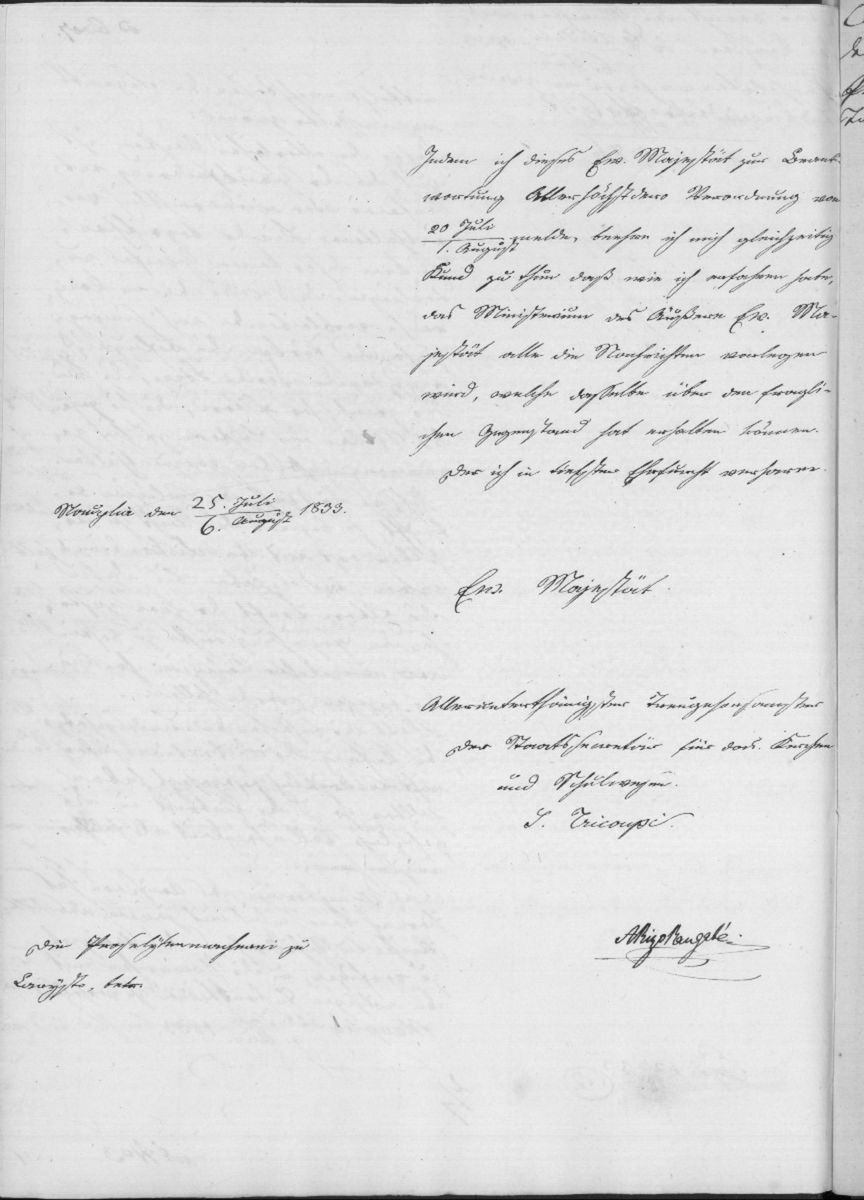 Indem ich dieses Ew. Majestät zur Beant-
wortung Allerhöchstdero Verordnung vom
20 Juli
1. August melde, beehre ich mich gleichzeitig
Kund zu thun daß wie ich erfahren habe,
das Ministerium des Äußern Ew. Ma-
jestät alle die Nachrichten vorlegen
wird, welche dasselbe über den fragli-
chen Gegenstand hat erhalten können.
Der ich in tiefster Ehrfurcht verharre.
Nauplia den 25. Juli
6. August 1833.
Ew. Majestät
Allerunterthänigster Treugehorsamster
Der Staatssecretär für das Kirchen
und Schulwesen.
S. Tricoupi.
ARizoRangabé.
Die Proselytenmacherei zu
Carysto, betr.